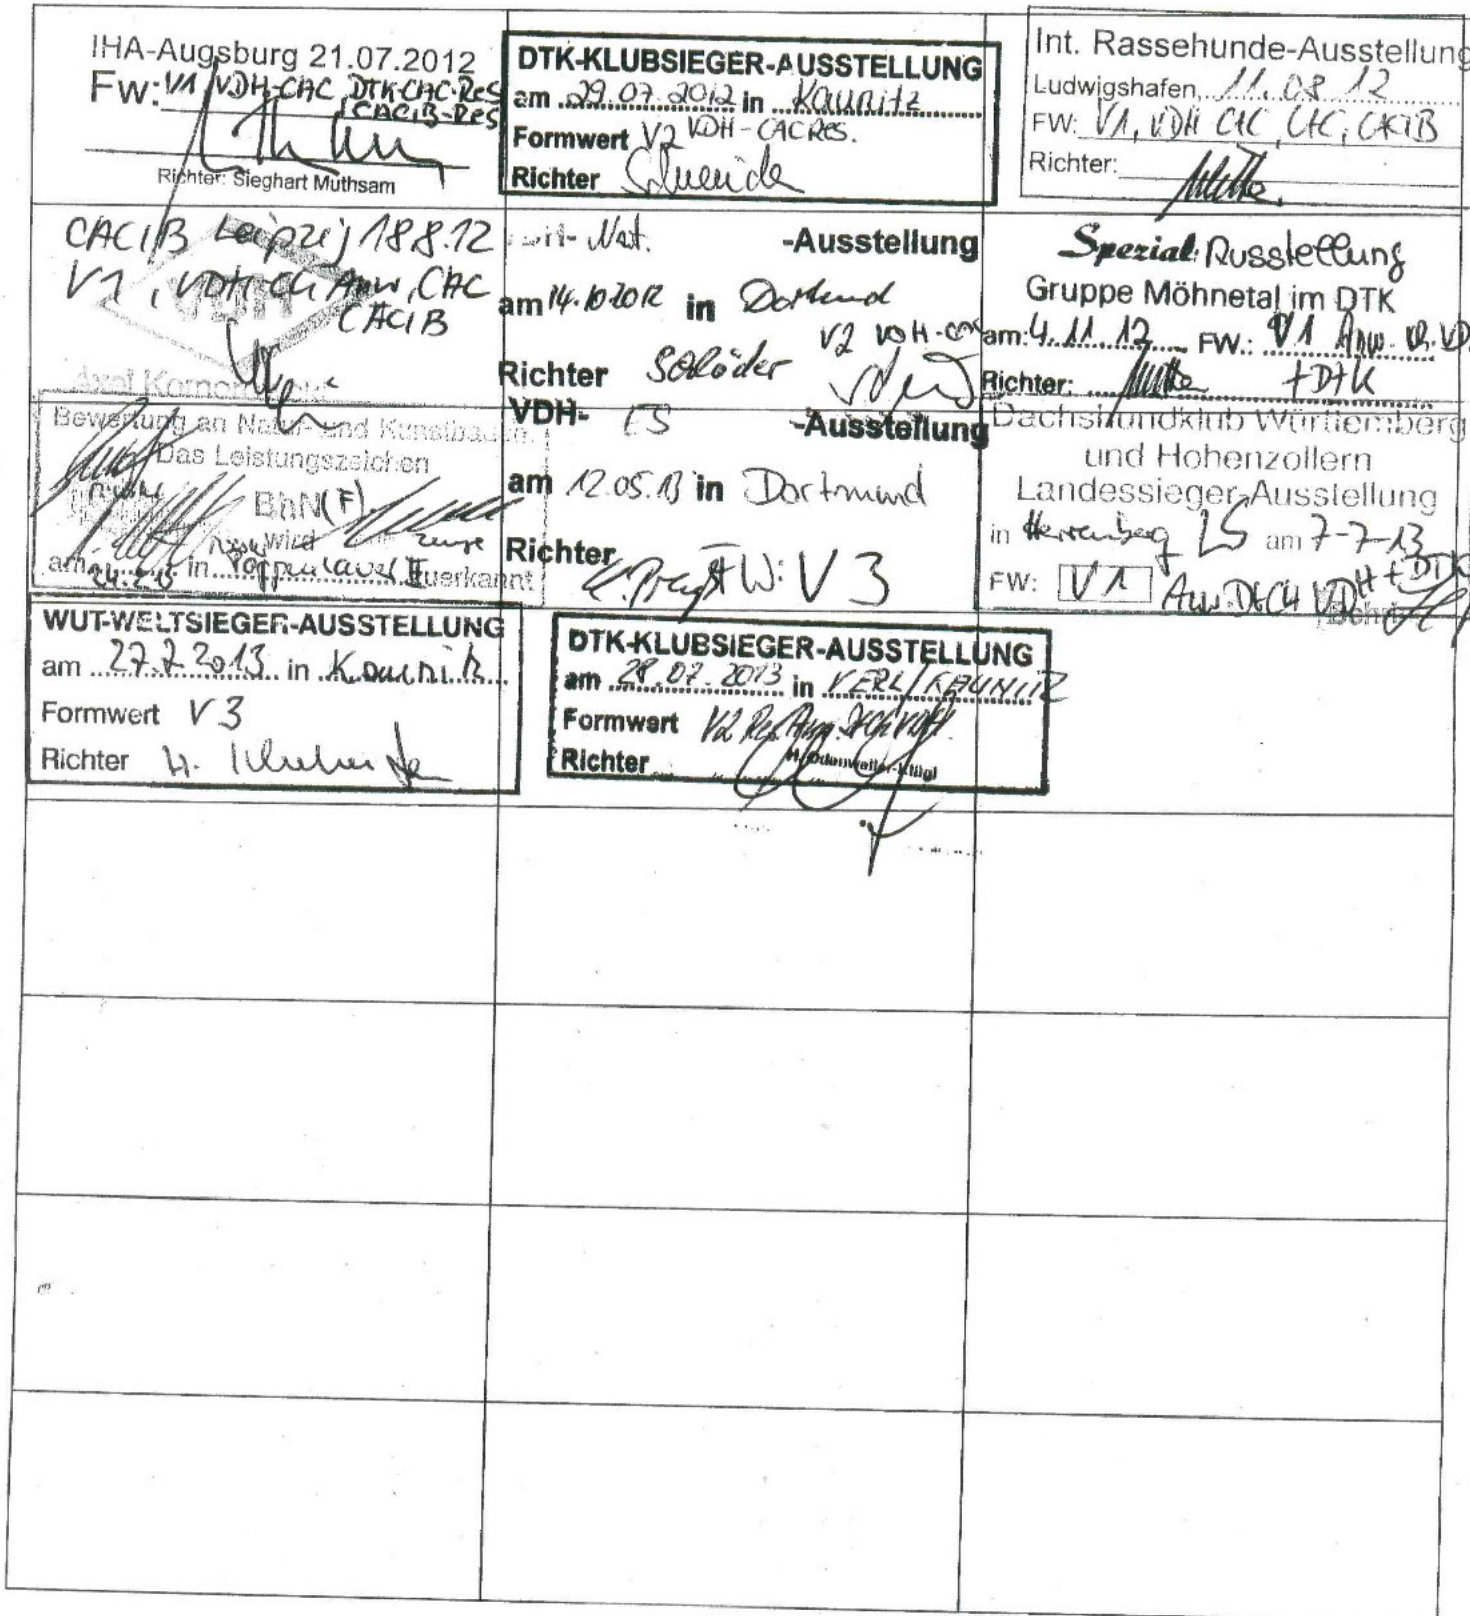 IHA-Augsburg 21.07.2012
Fw: V1 VDH-CAC DTK-CAC-Res
CACIB-Res
Richter: Sieghart Muthsam
DTK-KLUBSIEGER-AUSSTELLUNG
am 29.07.2012 in Kaunitz
Formwert V2 VDH-CAC RES.
Richter
Int. Rassehunde-Ausstellung
Ludwigshafen, 11.08.12
FW: V1, VDH CAC, CAC, CACIB
Richter:
CACIB Leipzig 18.8.12
V1, VDH-CH Anw, CAC
CACIB
VDH
Axel
Nat. -Ausstellung
am 14.10.2012 in Dortmund
V2 VDH-
Richter Schröder
Spezial: Ausstellung
Gruppe Möhnetal im DTK
am: 4.11.12 FW.: V1 Anw.
Richter: + DTK
Bewertung an Natur- und Kunstbauen
Das Leistungszeichen
BhN(F)
wird
am in Poppenlauer anerkannt
VDH- ES -Ausstellung
am 12.05.13 in Dortmund
Richter
FW: V3
Dachshundklub Württemberg
und Hohenzollern
Landessieger-Ausstellung
in Herrenberg LS am 7-7-13
FW: V1 Anw DtCH VDH + DTK
WUT-WELTSIEGER-AUSSTELLUNG
am 27.7.2013 in Kaunitz
Formwert V3
Richter H.
DTK-KLUBSIEGER-AUSSTELLUNG
am 28.07.2013 in VERL/KAUNITZ
Formwert V2 Res. Anw.
Richter